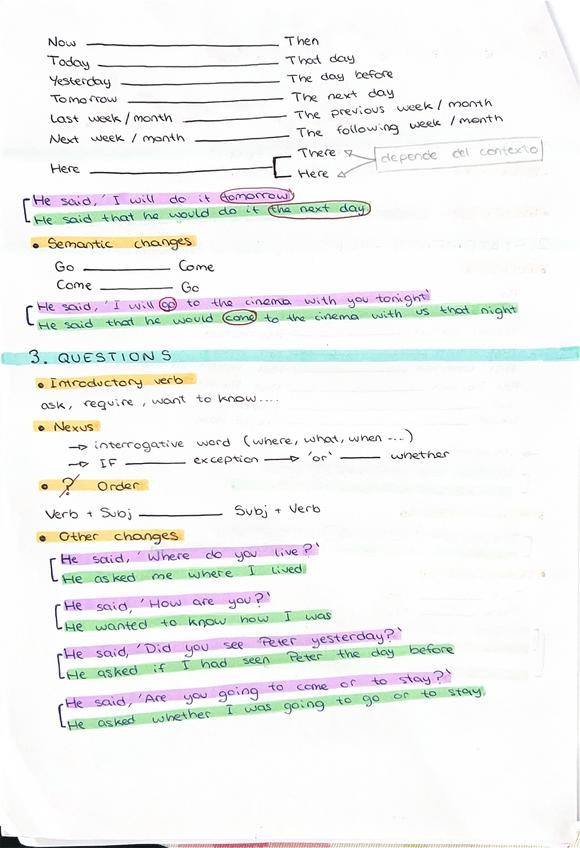 Now ——— Then
Today ——— That day
Yesterday ——— The day before
Tomorrow ——— The next day
Last week / month ——— The previous week / month
Next week / month ——— The following week / month
Here ——— There
Here
depende del contexto
He said, 'I will do it tomorrow'
He said that he would do it the next day
• Semantic changes
Go ——— Come
Come ——— Go
He said, 'I will go to the cinema with you tonight'
He said that he would come to the cinema with us that night
3. QUESTIONS
• Introductory verb
ask, require, want to know....
• Nexus
→ interrogative word (where, what, when ...)
→ IF ——— exception → 'or' ——— whether
• ? Order
Verb + Subj ——— Subj + Verb
• Other changes
He said, 'Where do you live?'
He asked me where I lived
He said, 'How are you?'
He wanted to know how I was
He said, 'Did you see Peter yesterday?'
He asked if I had seen Peter the day before
He said, 'Are you going to come or to stay?'
He asked whether I was going to go or to stay.